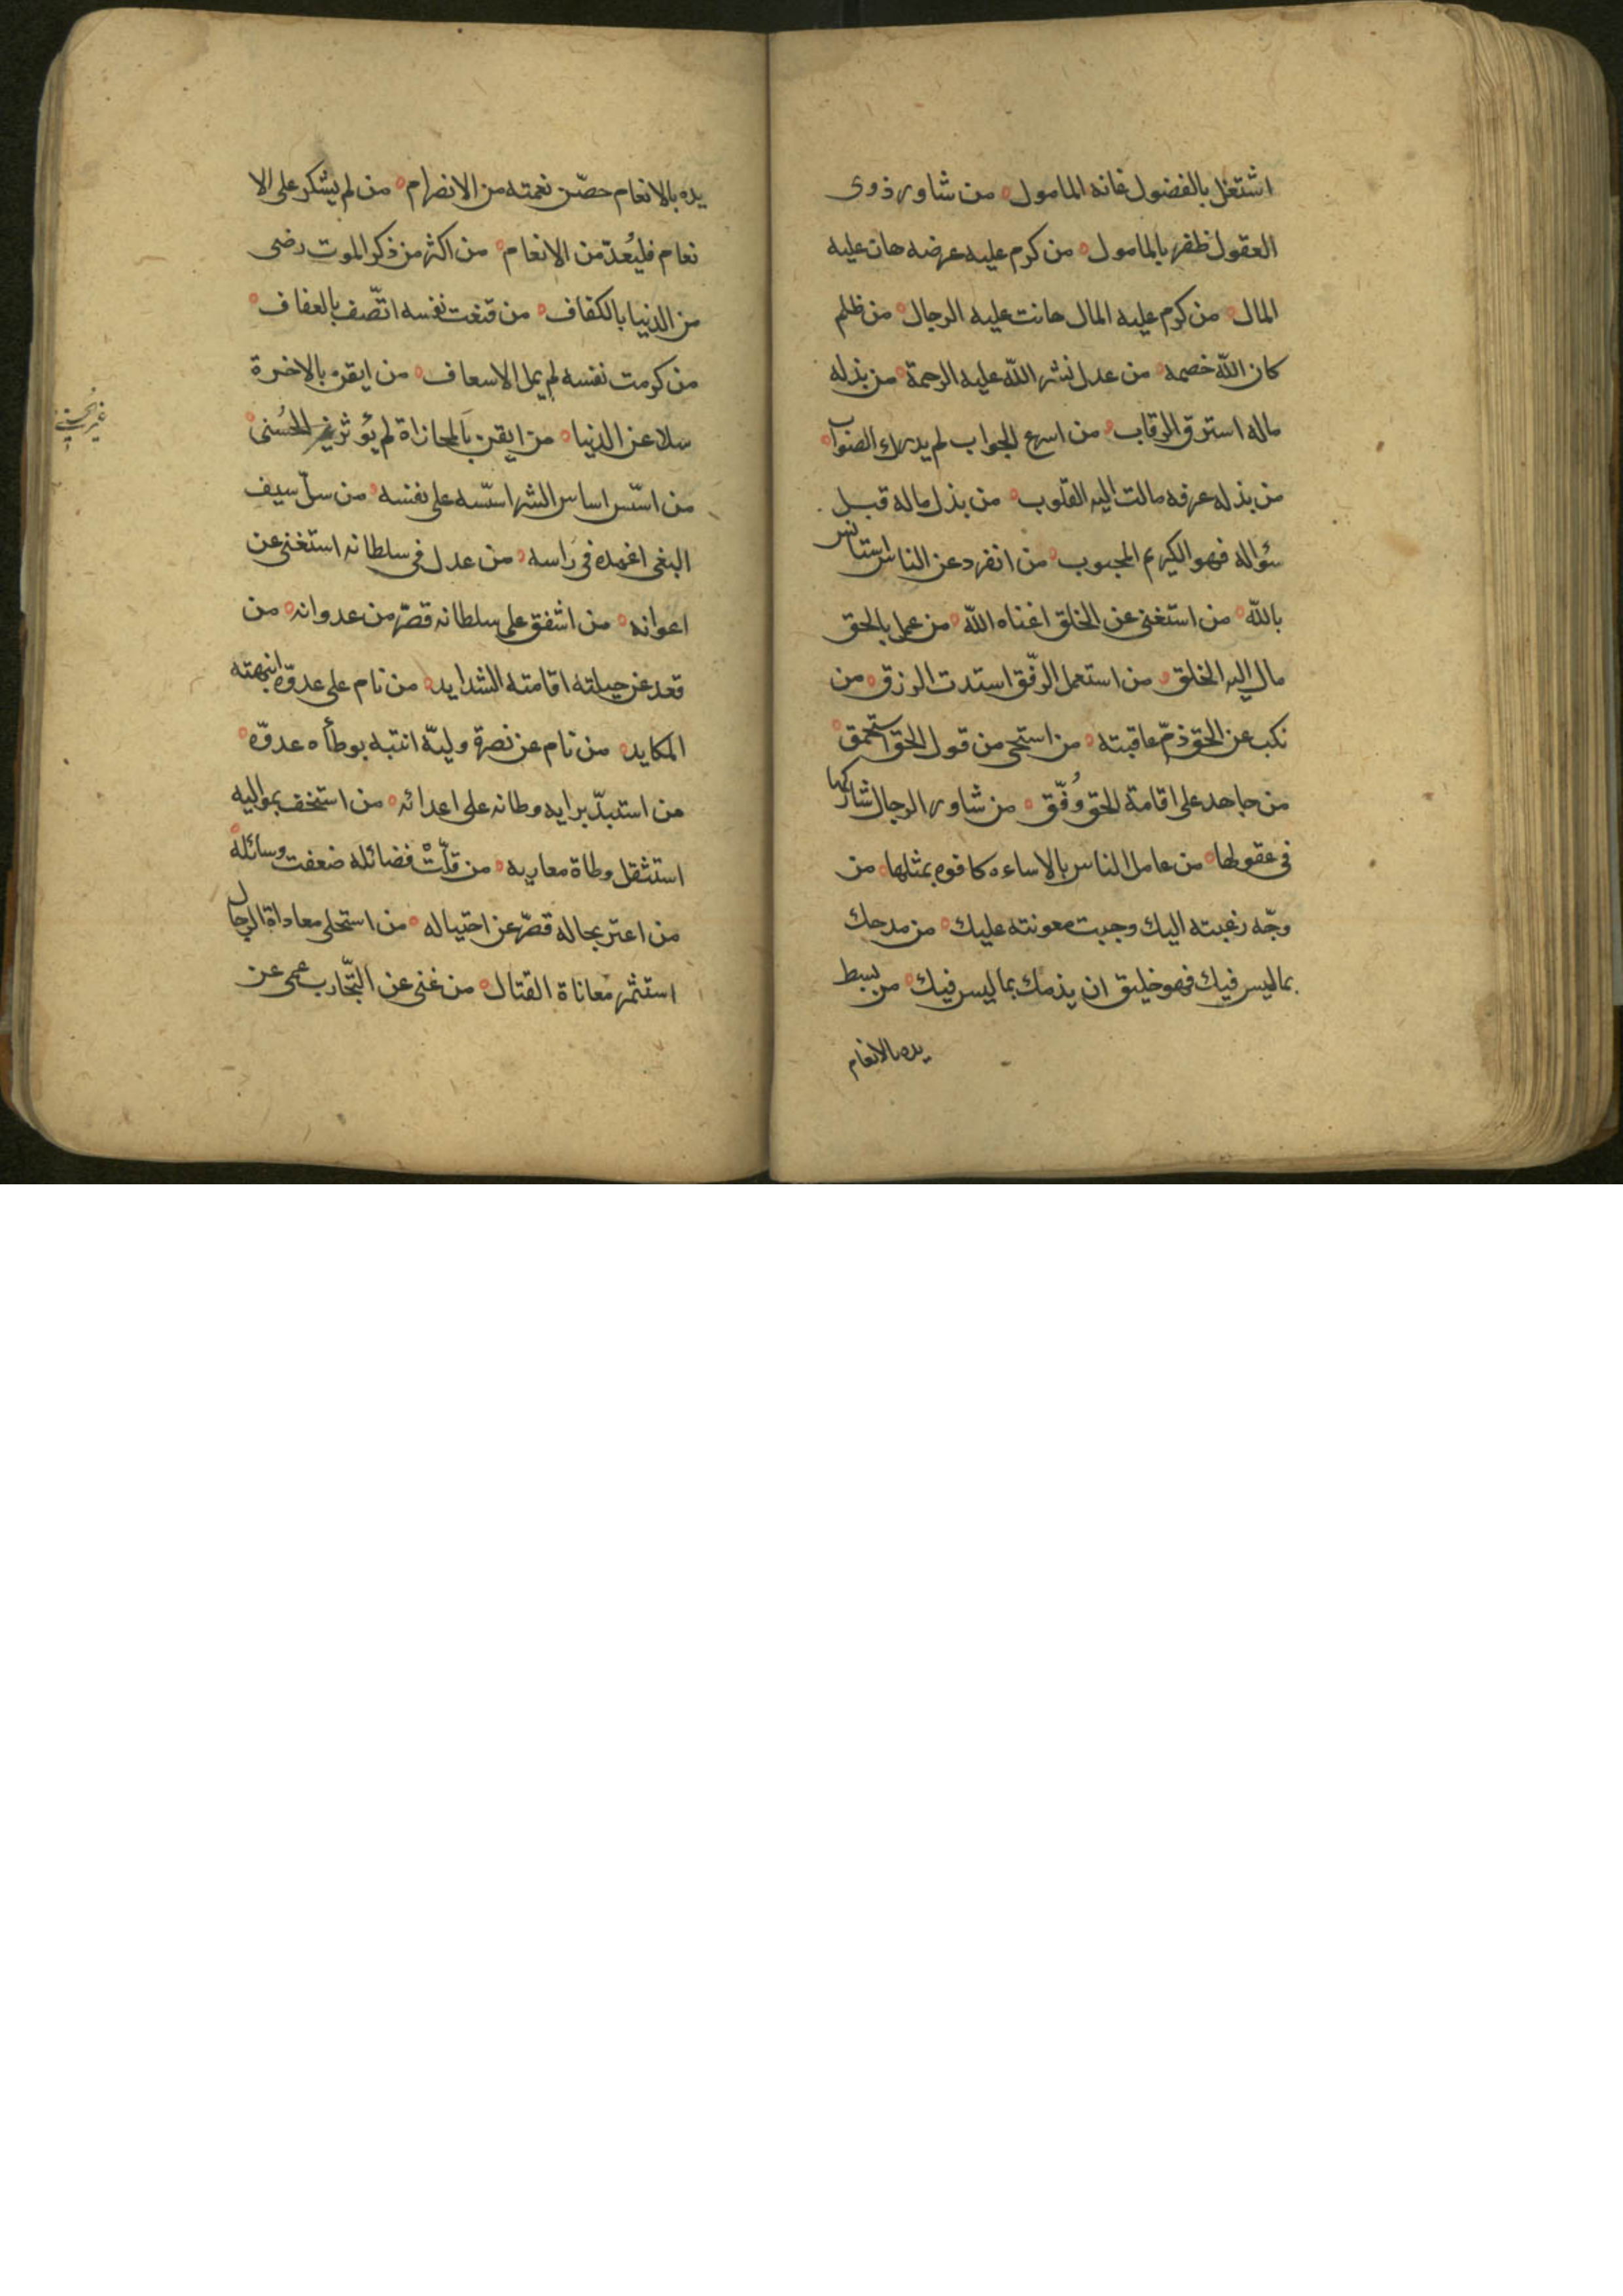 اشتغل بالفضول فاته المامول ه من شاور ذوى
العقول ظفر بالمامول ه من كرم عليه عرضه هان عليه
المال ه من كرم عليه المال هانت عليه الرجال ه من ظلم
كان الله خصمه ه من عدل نشر الله عليه الرحمة ه من بذله
ماله استرق الرقاب ه من اسرع الجواب لم يدرك الصواب ه
من بذله عرفه مالت اليه القلوب ه من بذل ماله قبل
سؤاله فهو الكريم المحبوب ه من انفرد عن الناس استانس
بالله ه من استغنى عن الخلق اغناه الله ه من عمل بالحق
مال اليه الخلق ه من استعمل الرفّق استدت الرزق ه من
نكب عن الحق ذمّ عاقبته ه من استحى من قول الحق استحمق ه
من جاهد على اقامة الحق وُفّق ه من شاور الرجال شاركها
فى عقولها ه من عامل الناس بالاساءه كافوه بمثلها ه من
وجّه رغبته اليك وجبت معونته عليك ه من مدحك
بما ليس فيك فهو خليق ان يذمك بما ليس فيك ه من يبسط
يده بالانعام
يده بالانعام حصّن نعمته من الانصرام ه من لم يشكر على الا
نعام فليُعدّ من الانعام ه من اكثر من ذكر الموت رضى
من الدنيا بالكفاف ه من قنعت نفسه اتّصف بالعفاف ه
من كرمت نفسه لم يمل الاسعاف ه من ايقن بالاخرة
سلا عن الدنيا ه من ايقن بالمجازاة لم يؤثر غير الحُسنى ه
غير الحُسنى
من اسّس اساس الشر اسّسه على نفسه ه من سلّ سيف
البغى اغمده فى راسه ه من عدل فى سلطانه استغنى عن
اعوانه ه من اشفق على سلطانه قصّر من عدوانه ه من
قعد عن حيلته اقامته الشدايد ه من نام على عدوّه انبهته
المكايد ه من نام عن نصرة وليّه انتبه بوطأه عدوّه ه
من استبدّ برايه وطانه على اعدائه ه من استخف بمواليه
استثقل وطاة معاديه ه من قلّتْ فضائله ضعفت وسائله ه
من اعتر بحاله قصّر عن احتياله ه من استحلى معاداة الرجال
استثمر معاناة القتال ه من غنى عن التّجارب عمى عن